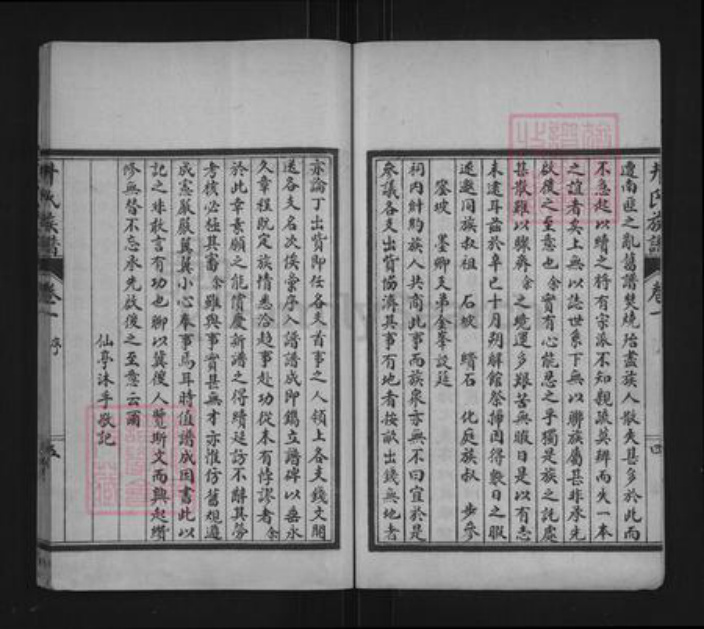 遭南匪之亂舊譜焚燒殆盡族人散失甚多於此而
不急起以續之將有宗派不知親疏莫辨而失一本
之誼者矣上無以誌世系下無以聯族屬甚非承先
啟後之至意也余實有心能忍之乎獨是族之託處
甚散難以綜弄余之境運多艱苦無暇日是以有志
未遠耳茲於辛巳十月朔解館祭掃因得數日之暇
逐邀同族叔祖 石坡 續石 化庭族叔 步彥
奎坡 墨卿足弟金峯設筵
祠內計約族人共商此事而族衆亦無不曰宜於是
參議各支出貲協濟其事有地者按畝出錢無地者
亦論丁出貲即任各支首事之人領上各支錢文開
送各支名次俟彙序入譜譜成即鐫立譜碑以垂永
久章程既定族情悉洽趨事赴功從未有悖謬者余
於此幸素願之能償慶新譜之得續延訪不辭其勞
考核必極其審余雖與事實甚無才亦惟仿舊規遵
成憲嚴嚴翼翼小心奉事焉耳時值譜成因書此以
記之非敢言有功也聊以冀後人覽斯文而興起纘
修無替不忘承先啟後之至意云爾
仙亭沐手敬記
井氏族譜 卷一 序 四
井氏族譜 卷一 序 五